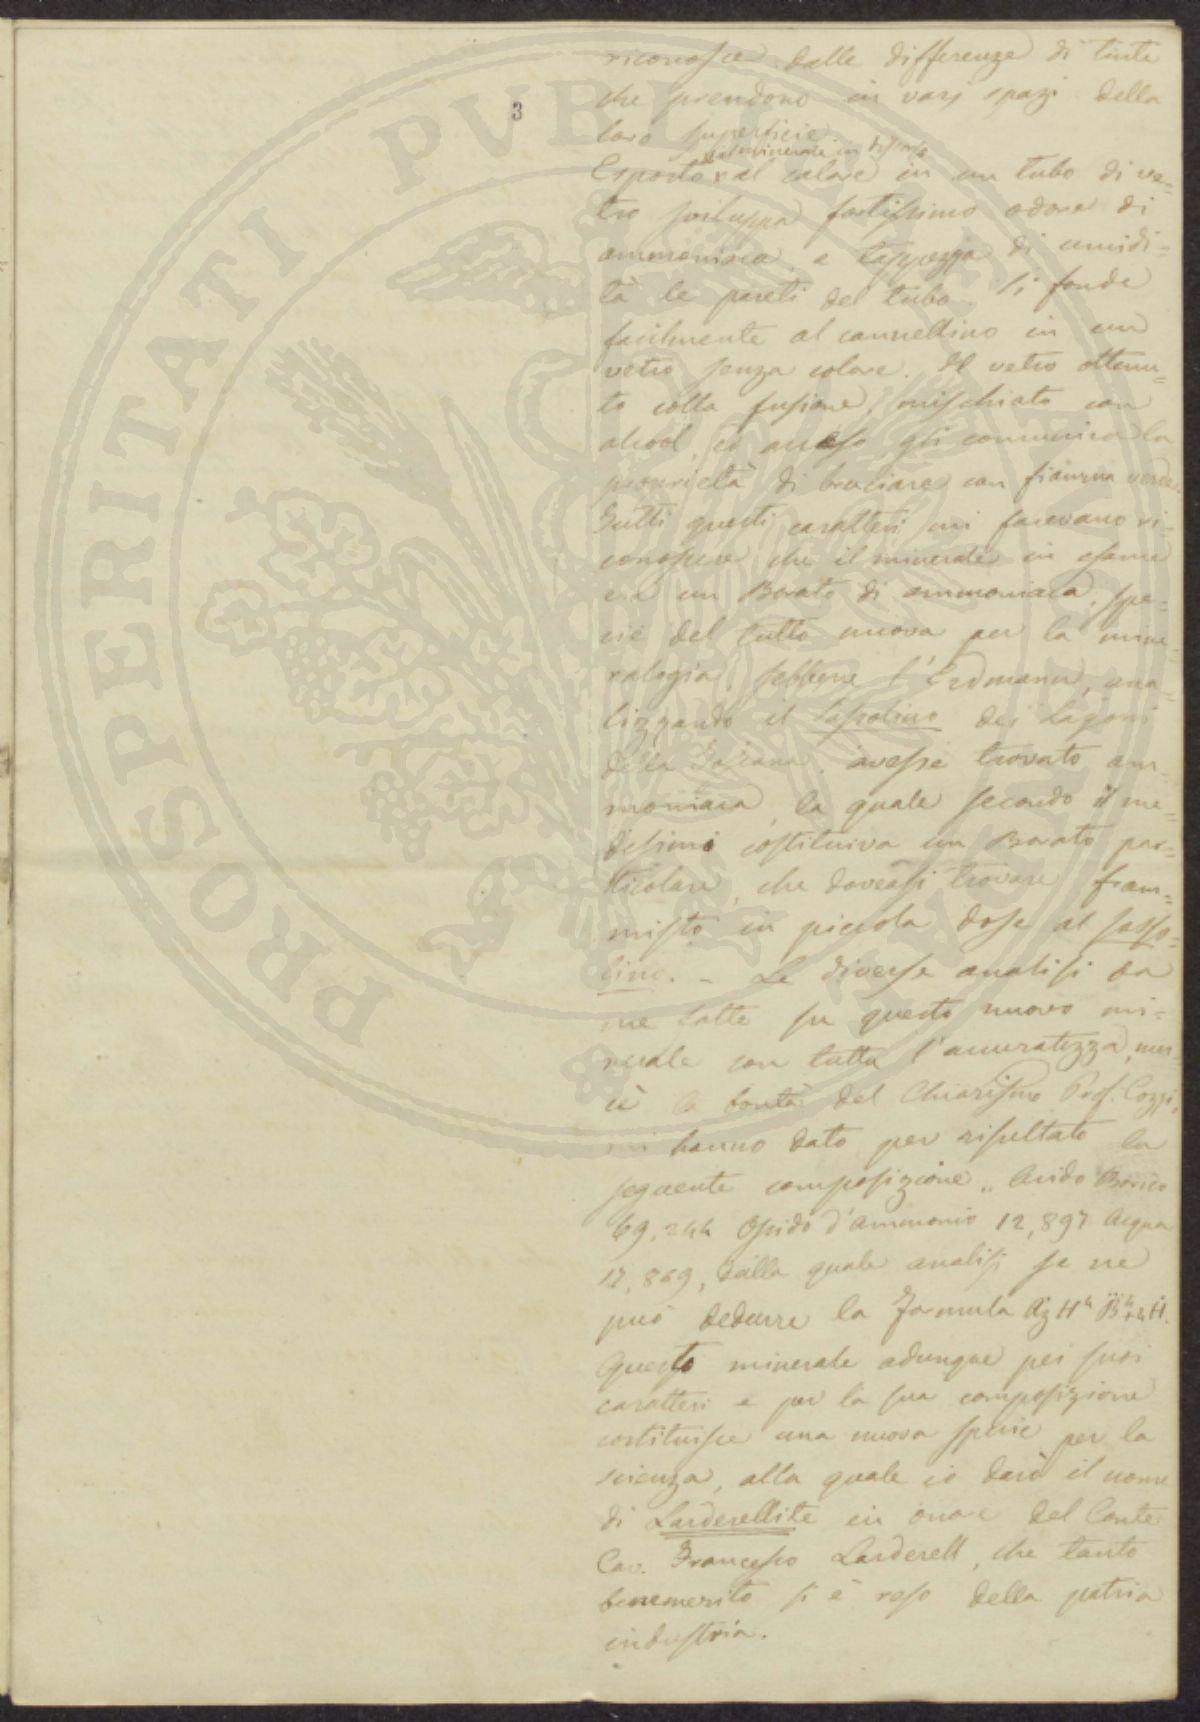 3
riconosce dalle differenze di tinte
che prendono in varj spazj della
loro superficie
il minerale in discorso
Esposto al calore in un tubo di ve=
tro sviluppa fortissimo odore di
ammoniaca e tappezza di umidi=
tà le pareti del tubo. Si fonde
facilmente al cannellino in un
vetro senza colore. Il vetro ottenu=
to colla fusione, mischiato con
alcool, ed acceso gli comunica la
proprietà di bruciare con fiamma verde.
Tutti questi caratteri mi facevano ri=
conoscere che il minerale in esame
era un Borato di ammoniaca, spe=
cie del tutto nuova per la mine=
ralogia, sebbene l'Erdmann, ana=
lizzando il Sassolino dei Lagoni
della Toscana, avesse trovato am=
moniaca, la quale secondo il me=
desimo costituiva un Borato par=
ticolare, che doveasi trovare fram=
misto in piccola dose al sasso=
lino. - Le diverse analisi da
me fatte su questo nuovo mi=
nerale con tutta l'accuratezza, mer=
cè la bontà del Chiarissmo Prof. Cozzi,
mi hanno dato per risultato la
seguente composizione „ Acido Borico
69,244 Ossido d'Ammonio 12,897 Acqua
17,869, dalla quale analisi se ne
può dedurre la formula Az H⁴ B⁴+4H.
Questo minerale adunque pei suoi
caratteri e per la sua composizione
costituisce una nuova specie per la
scienza, alla quale io darò il nome
di Larderellite in onore del Conte
Cav. Francesco Larderell, che tanto
benemerito si è reso della patria
industria.
PROSPERITATI PVBLICAE AVGENDAE